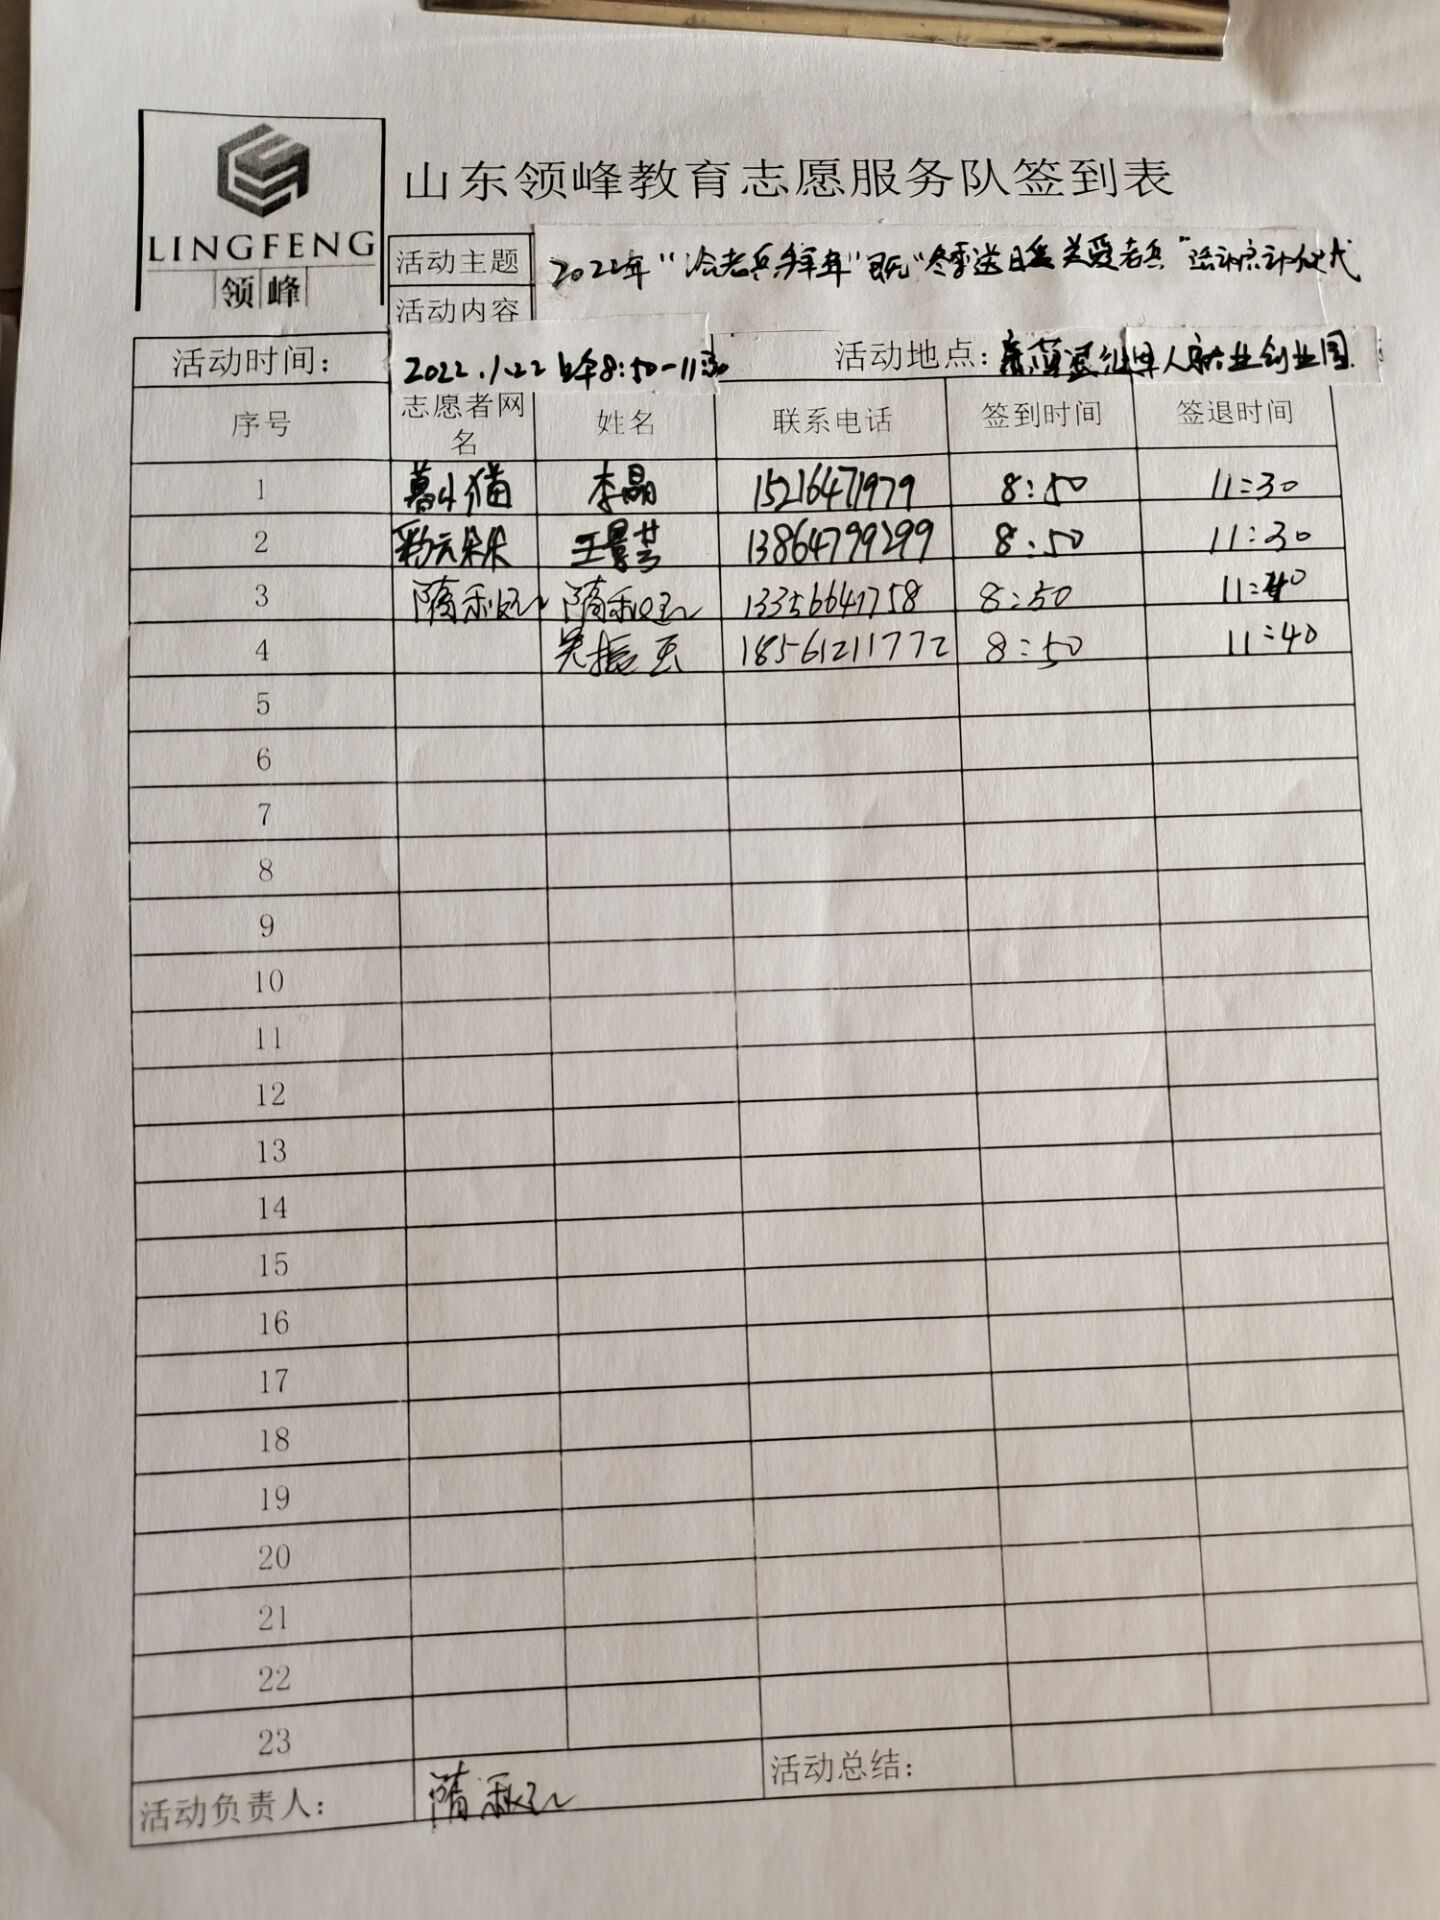 LINGFENG
领峰
山东领峰教育志愿服务队签到表
活动主题 2022年“给老兵拜年”暨“冬季送温暖 关爱老兵”活动启动仪式
活动内容
活动时间: 2022.1.22 上午8:50-11:30 活动地点: 退役军人就业创业园
序号 志愿者网名 姓名 联系电话 签到时间 签退时间
1 小猫 李晶 15216471979 8:50 11:30
2 彩云朵朵 王景芸 13864799299 8:50 11:30
3 隋秋 隋秋 13356641758 8:50 11:40
4 吴振 18561211772 8:50 11:40
5
6
7
8
9
10
11
12
13
14
15
16
17
18
19
20
21
22
23
活动负责人: 隋秋 活动总结: